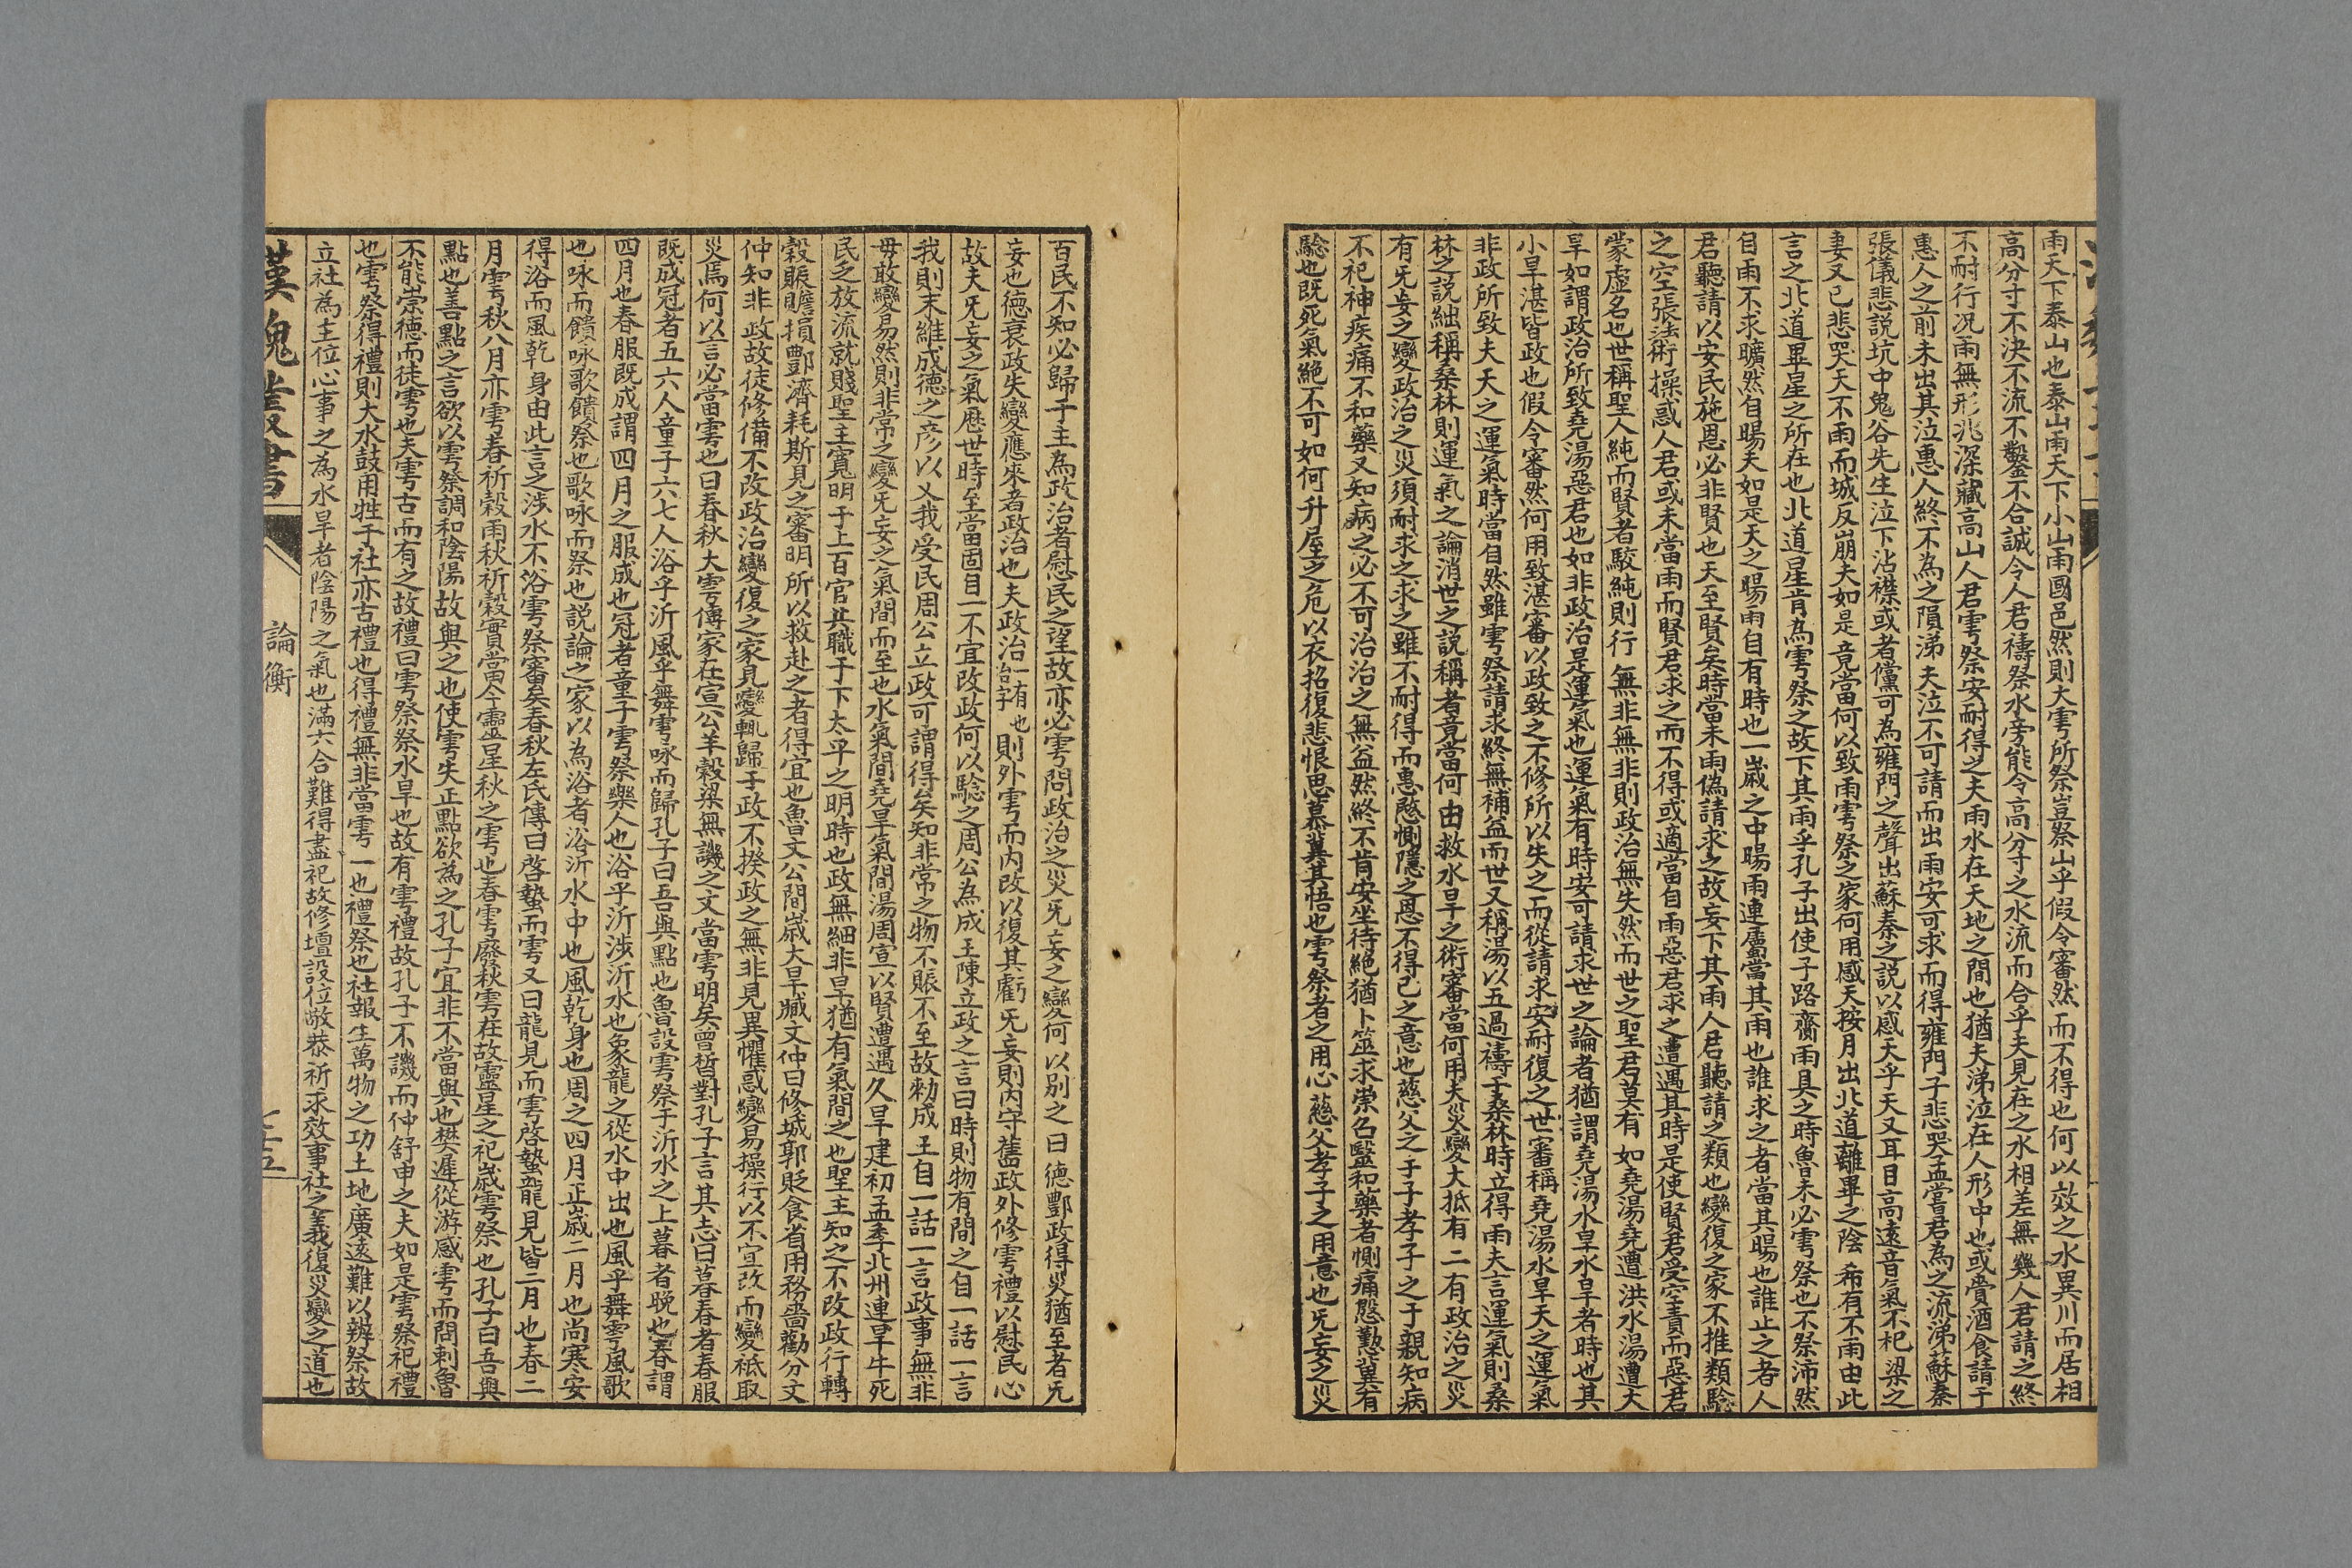 雨天下泰山也泰山雨天下小山雨國邑然則大雩所祭豈祭山乎假令審然而不得也何以效之水異川而居相
高分寸不決不流不鑿不合誠令人君禱祭水旁能令高分寸之水流而合乎夫見在之水相差無幾人君請之終
不耐行况雨無形兆深藏高山人君雩祭安耐得之夫雨水在天地之間也猶夫涕泣在人形中也或賫酒食請于
惠人之前未出其泣惠人終不為之隕涕夫泣不可請而出雨安可求而得雍門子悲哭孟嘗君為之流涕蘇秦
張儀悲説坑中鬼谷先生泣下沾襟或者儻可為雍門之聲出蘇秦之説以感天乎天又耳目高遠音氣不杞梁之
妻又已悲哭天不雨而城反崩夫如是竟當何以致雨雩祭之家何用感天按月出北道離畢之陰希有不雨由此
言之北道畢星之所在也北道星肯為雩祭之故下其雨乎孔子出使子路齎雨具之時魯未必雩祭也不祭沛然
自雨不求曠然自暘夫如是天之暘雨自有時也一歲之中暘雨連屬當其雨也誰求之者當其暘也誰止之者人
君聽請以安民施恩必非賢也天至賢矣時當未雨偽請求之故妄下其雨人君聽請之類也變復之家不推類驗
之空張法術操惑人君或未當雨而賢君求之而不得或適當自雨惡君求之遭遇其時是使賢君受空責而惡君
蒙虛名也世稱聖人純而賢者駁純則行無非無非則政治無失然而世之聖君莫有如堯湯堯遭洪水湯遭大
旱如謂政治所致堯湯惡君也如非政治是運氣也運氣有時安可請求世之論者猶謂堯湯水旱水旱者時也其
小旱湛皆政也假令審然何用致湛審以政致之不修所以失之而從請求安耐復之世審稱堯湯水旱天之運氣
非政所致夫天之運氣時當自然雖雩祭請求終無補益而世又稱湯以五過禱于桑林時立得雨夫言運氣則桑
林之説絀稱桑林則運氣之論消世之説稱者竟當何由救水旱之術審當何用夫災變大抵有二有政治之災
有旡妄之變政治之災須耐求之求之雖不耐得而惠愍惻隱之恩不得已之意也慈父之于子孝子之于親知病
不祀神疾痛不和藥又知病之必不可治治之無益然終不肯安坐待絶猶卜筮求祟召醫和藥者惻痛慇懃冀有
驗也既死氣絶不可如何升屋之危以衣招復悲恨思慕冀其悟也雩祭者之用心慈父孝子之用意也旡妄之災
百民不知必歸于主為政治者慰民之望故亦必雩問政治之災旡妄之變何以別之曰德酆政得災猶至者旡
妄也德衰政失變應來者政治也夫政治一有也字則外雩而內改以復其虧旡妄則內守舊政外修雩禮以慰民心
故夫旡妄之氣歷世時至當固自一不宜改政何以驗之周公為成王陳立政之言曰時則物有間之自一話一言
我則末維成德之彦以乂我受民周公立政可謂得矣知非常之物不賑不至故勑成王自一話一言政事無非
毋敢變易然則非常之變旡妄之氣間而至也水氣間堯旱氣間湯周宣以賢遭遇久旱建初孟季北州連旱牛死
民乏放流就賤聖主寬明于上百官共職于下太平之明時也政無細非旱猶有氣間之也聖主知之不改政行轉
穀賑贍損酆濟耗斯見之審明所以救赴之者得宜也魯文公間歲大旱臧文仲曰修城郭貶食省用務嗇勸分文
仲知非政故徒修備不改政治變復之家見變輒歸于政不揆政之無非見異懼惑變易操行以不宜改而變秪取
災焉何以言必當雩也曰春秋大雩傳家在宣公羊穀梁無譏之文當雩明矣曾晳對孔子言其志曰暮春者春服
既成冠者五六人童子六七人浴乎沂風乎舞雩咏而歸孔子曰吾與點也魯設雩祭于沂水之上暮者晚也春謂
四月也春服既成謂四月之服成也冠者童子雩祭樂人也浴乎沂涉沂水也象龍之從水中出也風乎舞雩風歌
也咏而饋咏歌饋祭也歌咏而祭也説論之家以為浴者浴沂水中也風乾身也周之四月正歲二月也尚寒安
得浴而風乾身由此言之涉水不浴雩祭審矣春秋左氏傳曰啓蟄而雩又曰龍見而雩啓蟄龍見皆二月也春二
月雩秋八月亦雩春祈穀雨秋祈穀實當今靈星秋之雩也春雩廢秋雩在故靈星之祀歲雩祭也孔子曰吾與
點也善點之言欲以雩祭調和陰陽故與之也使雩失正點欲為之孔子宜非不當與也樊遲從游感雩而問刺魯
不能崇德而徒雩也夫雩古而有之故禮曰雩祭祭水旱也故有雩禮故孔子不譏而仲舒申之夫如是雩祭祀禮
也雩祭得禮則大水鼓用牲于社亦古禮也得禮無非當雩一也禮祭也社報生萬物之功土地廣遠難以辨祭故
立社為主位心事之為水旱者陰陽之氣也滿六合難得盡祀故修壇設位敬恭祈求效事社之義復災變之道也
漢魏叢書
論衡